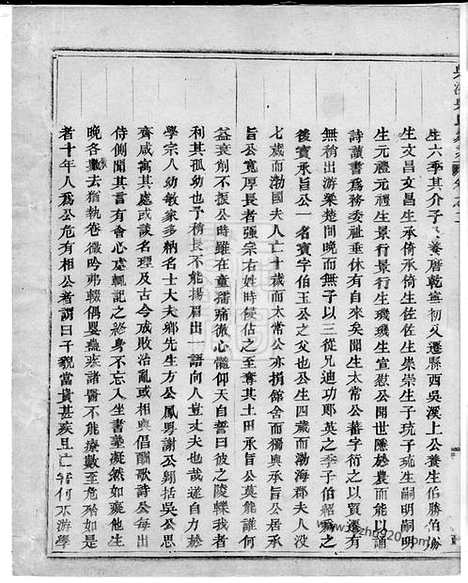 生六季其介子
公養唐乾寧初又遷縣西吳溪上公養生伯勝伯倫
生文昌文昌生承倚承倚生佐佐生崇崇生子琉子琉生嗣明嗣明
生元禮元禮生景行景行生璣璣生宣慰公開世隱於農而能以誦
詩讀書爲務委祉垂休有自來矣開生太常公蕃字衍之以質遷有
無稍出游梁楚間晚而無子以三從兄迪功郎英之季子伯紹爲之
後實承旨公一名實字伯玉公之父也公生四歲而渤海郡夫人没
七歲而渤國夫人亡十歲而太常公亦捐館舍而獨與承旨公居承
旨公寬厚長者強宗右姓時侵估之至奪其土田承旨公莫能誰何
益衰削不振公時雖在童孺痛徹心髓仰天自誓曰彼之陵轢我者
利其孤幼也予稍長不能揚眉出一語向人豈丈夫也哉遂自力於
學宗人幼敏家多納名士大夫鄉先生方公鳳謝公翱括吳公思
齊咸寓其處或談名理及古今成敗治亂或相與倡酬歌詩公每出
侍側聞其言有會心處輒記之終身不忘入坐書塾凝然如癡他生
晚各棄去猶執卷微吟弗輟偶嬰羸疾諸醫不能療數至危殆如是
者十年人爲公危有相公者謂曰子貌當貴甚疾且亡害何不游學
www.zhgzu920.com